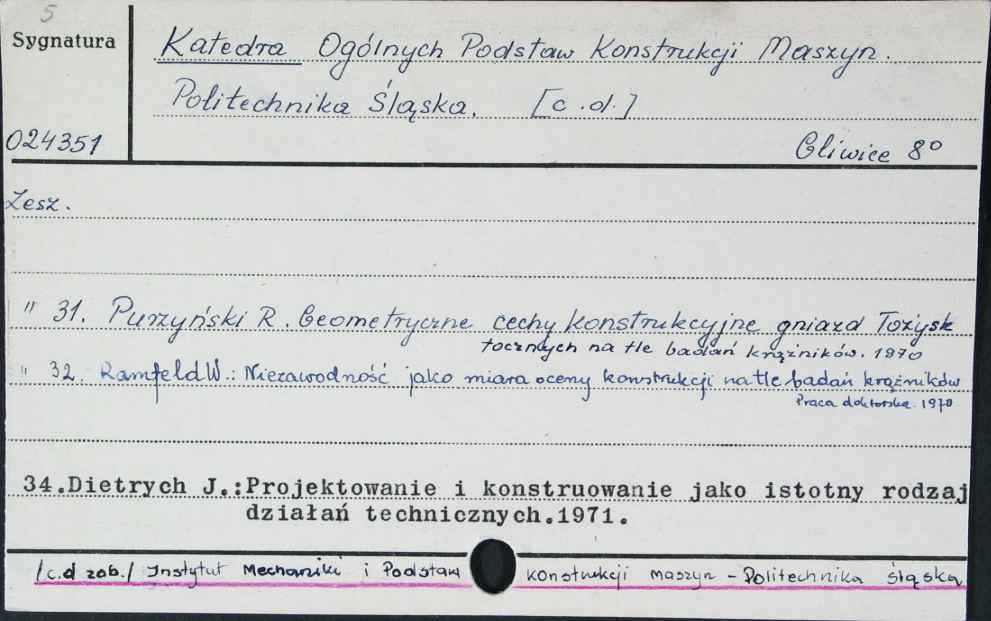 5
Sygnatura
Katedra Ogólnych Podstaw Konstrukcji Maszyn.
Politechnika Śląska. [c.d.]
024351
Gliwice 8º
Zesz.
" 31. Purzyński R. Geometryczne cechy konstrukcyjne gniazd łożysk
tocznych na tle badań krążników. 1970
" 32. Ramfeld W.: Niezawodność jako miara oceny konstrukcji na tle badań krążników
Praca doktorska. 1970
34.Dietrych J.:Projektowanie i konstruowanie jako istotny rodzaj
działań technicznych.1971.
/c.d zob./ Instytut Mechaniki i Podstaw konstrukcji maszyn - Politechnika śląska